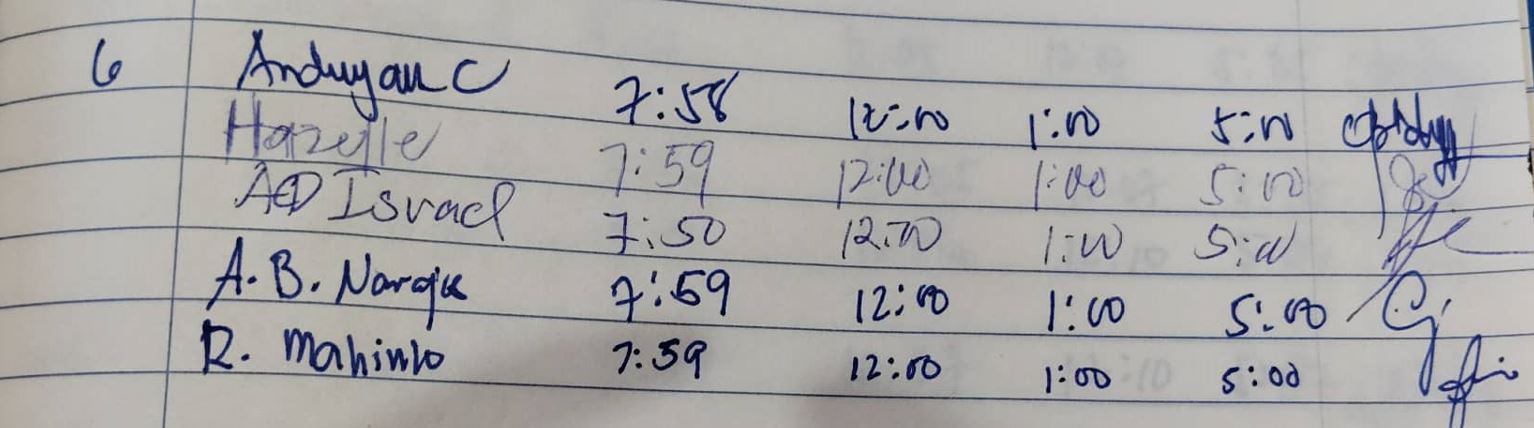 6 Anduyan C 7:58 12:00 1:00 5:00
Hazelle 7:59 12:00 1:00 5:00
AD Israel 7:50 12:00 1:00 5:00
A. B. 7:59 12:00 1:00 5:00
R. Mahinlo 7:59 12:00 1:00 5:00